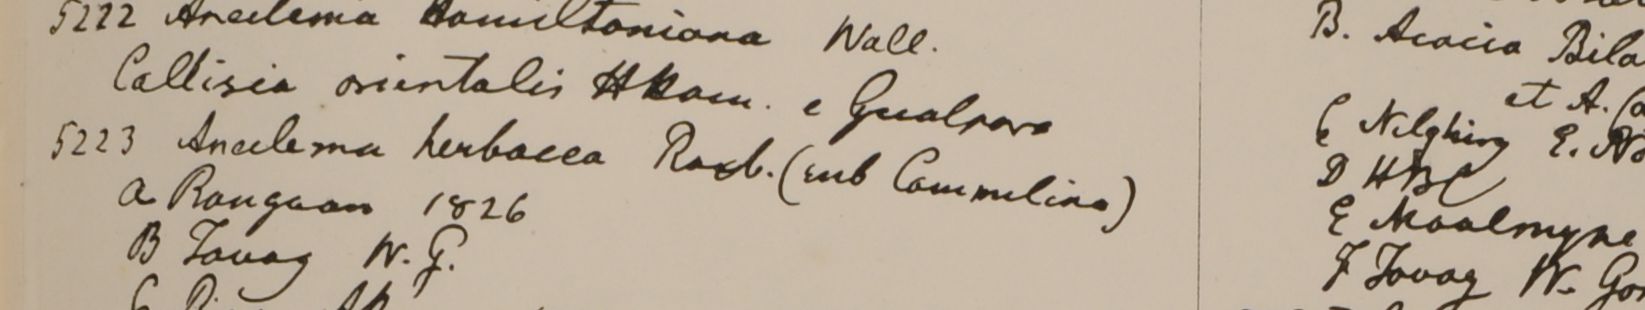 5222 Aneilema Hamiltoniana Wall.
Callisia orientalis HHam. e Gualpara
5223 Aneilema herbacea Roxb. (sub Commelina)
a Rangoon 1826
B Tavoy W. G.
B. Acacia Bila
et A.
C Nilghiry E. No
D HBC
E Moalmyne
F Tavoy W. Go